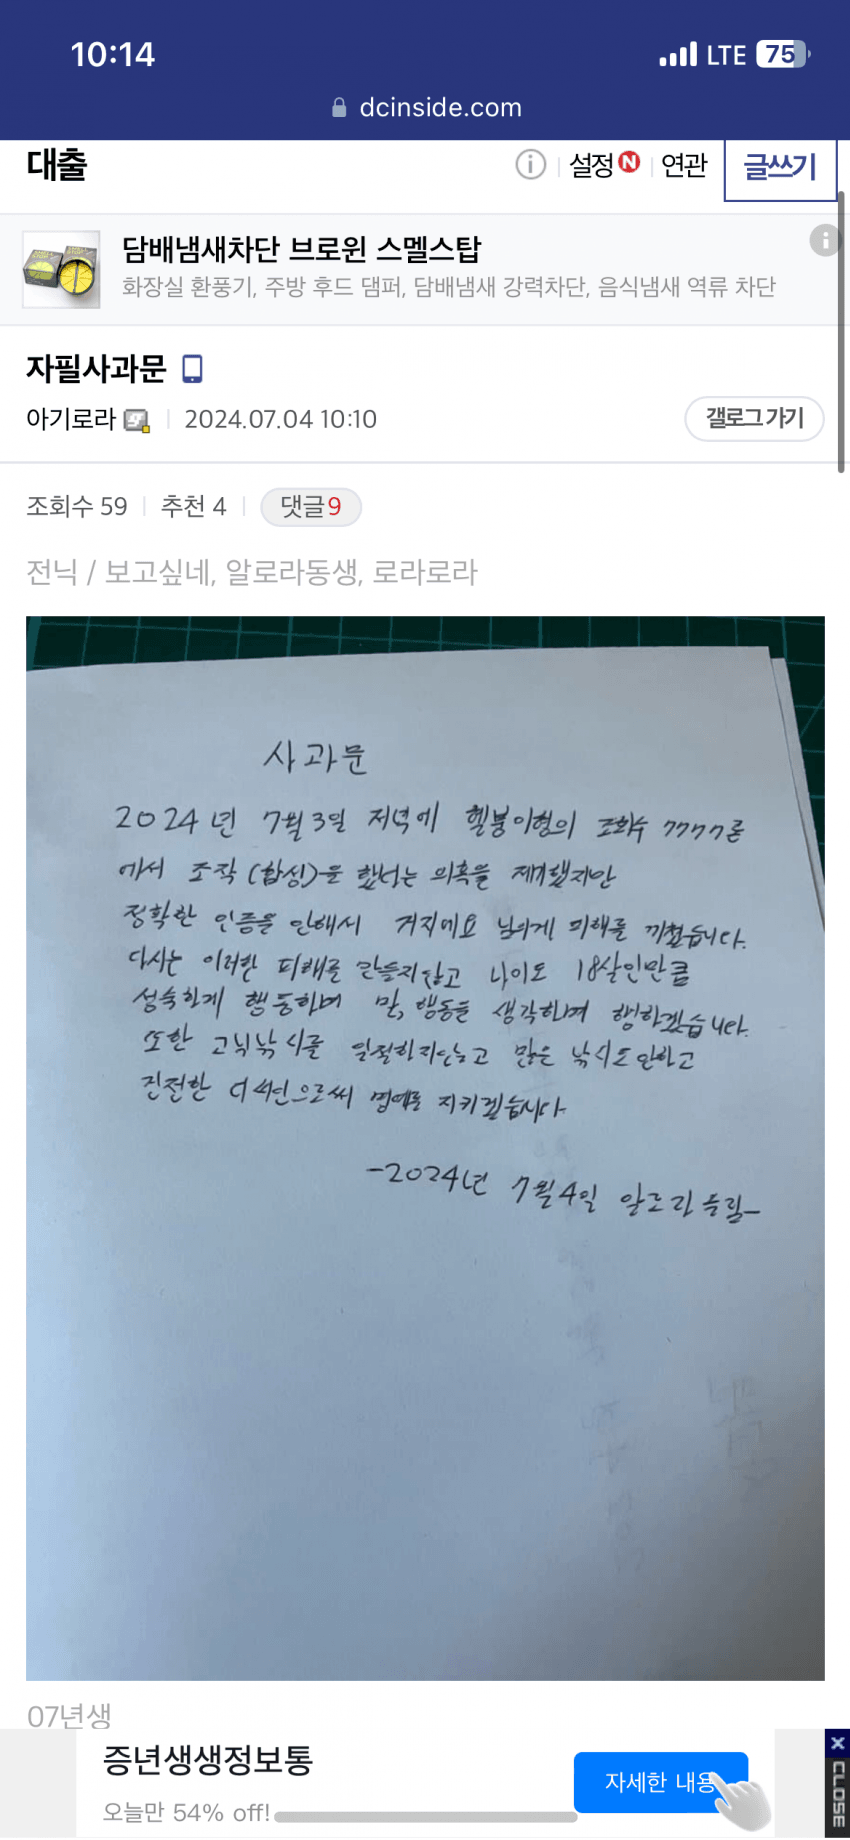 10:14
LTE 75
dcinside.com
대출
설정 N 연관 글쓰기
담배냄새차단 브로윈 스멜스탑
화장실 환풍기, 주방 후드 댐퍼, 담배냄새 강력차단, 음식냄새 역류 차단
자필사과문
아기로라 2024.07.04 10:10
갤로그 가기
조회수 59 추천 4 댓글 9
전닉 / 보고싶네, 알로라동생, 로라로라
사과문
2024년 7월 3일 저녁에 헬붕이형의 조회수 7777론
에서 조작(합성)을 했다는 의혹을 제기했지만
정확한 인증을 안해서 거지에요 님에게 피해를 끼쳤습니다.
다시는 이러한 피해를 만들지않고 나이도 18살인만큼
성숙하게 행동하며 말, 행동을 생각하며 행하겠습니다.
또한 고닉낚시를 일절하지않고 많은 낚시도 안하고
진전한 으로써 명예를 지키겠습니다
-2024년 7월 4일 알로라 올림-
07년생
증년생생정보통
오늘만 54% off!
자세한 내용
X CLOSE